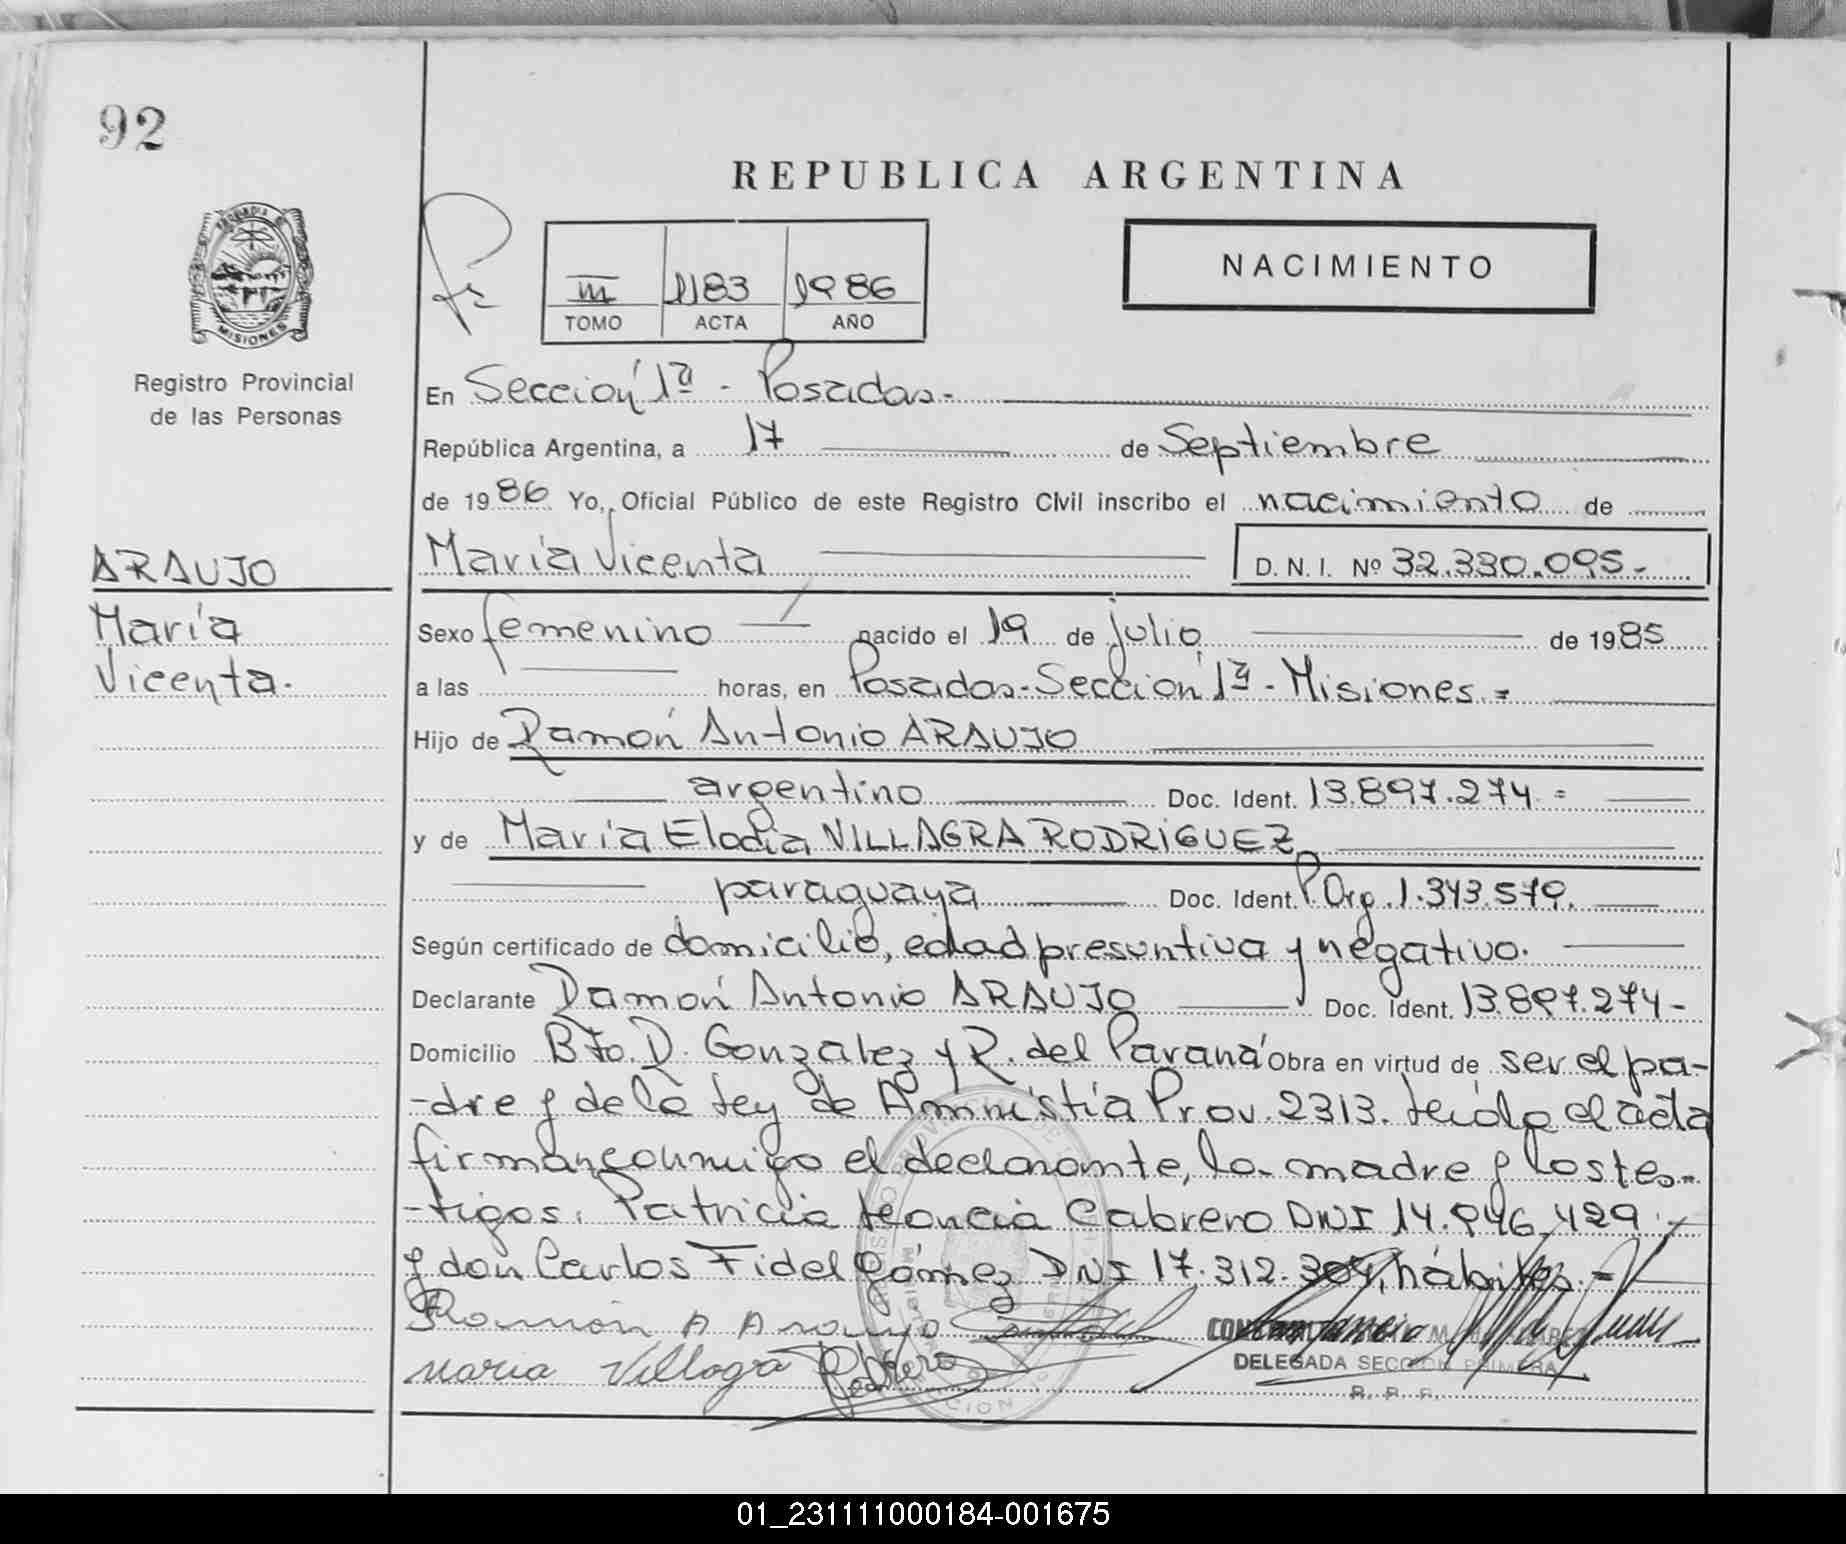 92
REPUBLICA ARGENTINA
NACIMIENTO
III 1183 1986
TOMO ACTA AÑO
MISIONES
Registro Provincial
de las Personas
ARAUJO
María
Vicenta.
En Sección 1ª - Posadas.-
República Argentina, a 17 de Septiembre
de 1986 Yo, Oficial Público de este Registro Civil inscribo el nacimiento de
María Vicenta D. N. I. Nº 32.330.095.-
Sexo femenino nacido el 19 de julio de 1985
a las horas, en Posadas-Sección 1ª - Misiones.=
Hijo de Ramón Antonio ARAUJO
argentino Doc. Ident. 13.897.274.=
y de María Elodia VILLAGRA RODRIGUEZ
paraguaya Doc. Ident. P. Org. 1.343.579.
Según certificado de domicilio, edad presuntiva y negativo.
Declarante Ramón Antonio ARAUJO Doc. Ident. 13.897.274-
Domicilio Bº Fo. D. Gonzalez y R. del Paraná Obra en virtud de ser el pa-
-dre y de la Ley de Amnistía Prov. 2313. Leída el acta
firman conmigo el declarante, la madre y los tes-
-tigos. Patricia Leoncia Cabrero DNI 14.946.429.-
y don Carlos Fidel Gómez DNI 17.312.304, hábiles.-
Ramón A Araujo
Maria Villagra
DELEGADA SECCION PRIMERA
R. P. P.
01_231111000184-001675